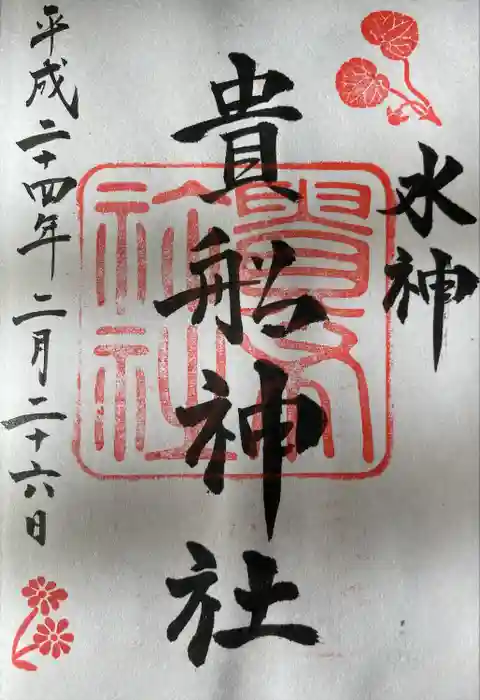 水神
貴船神社
平成二十四年二月二十六日